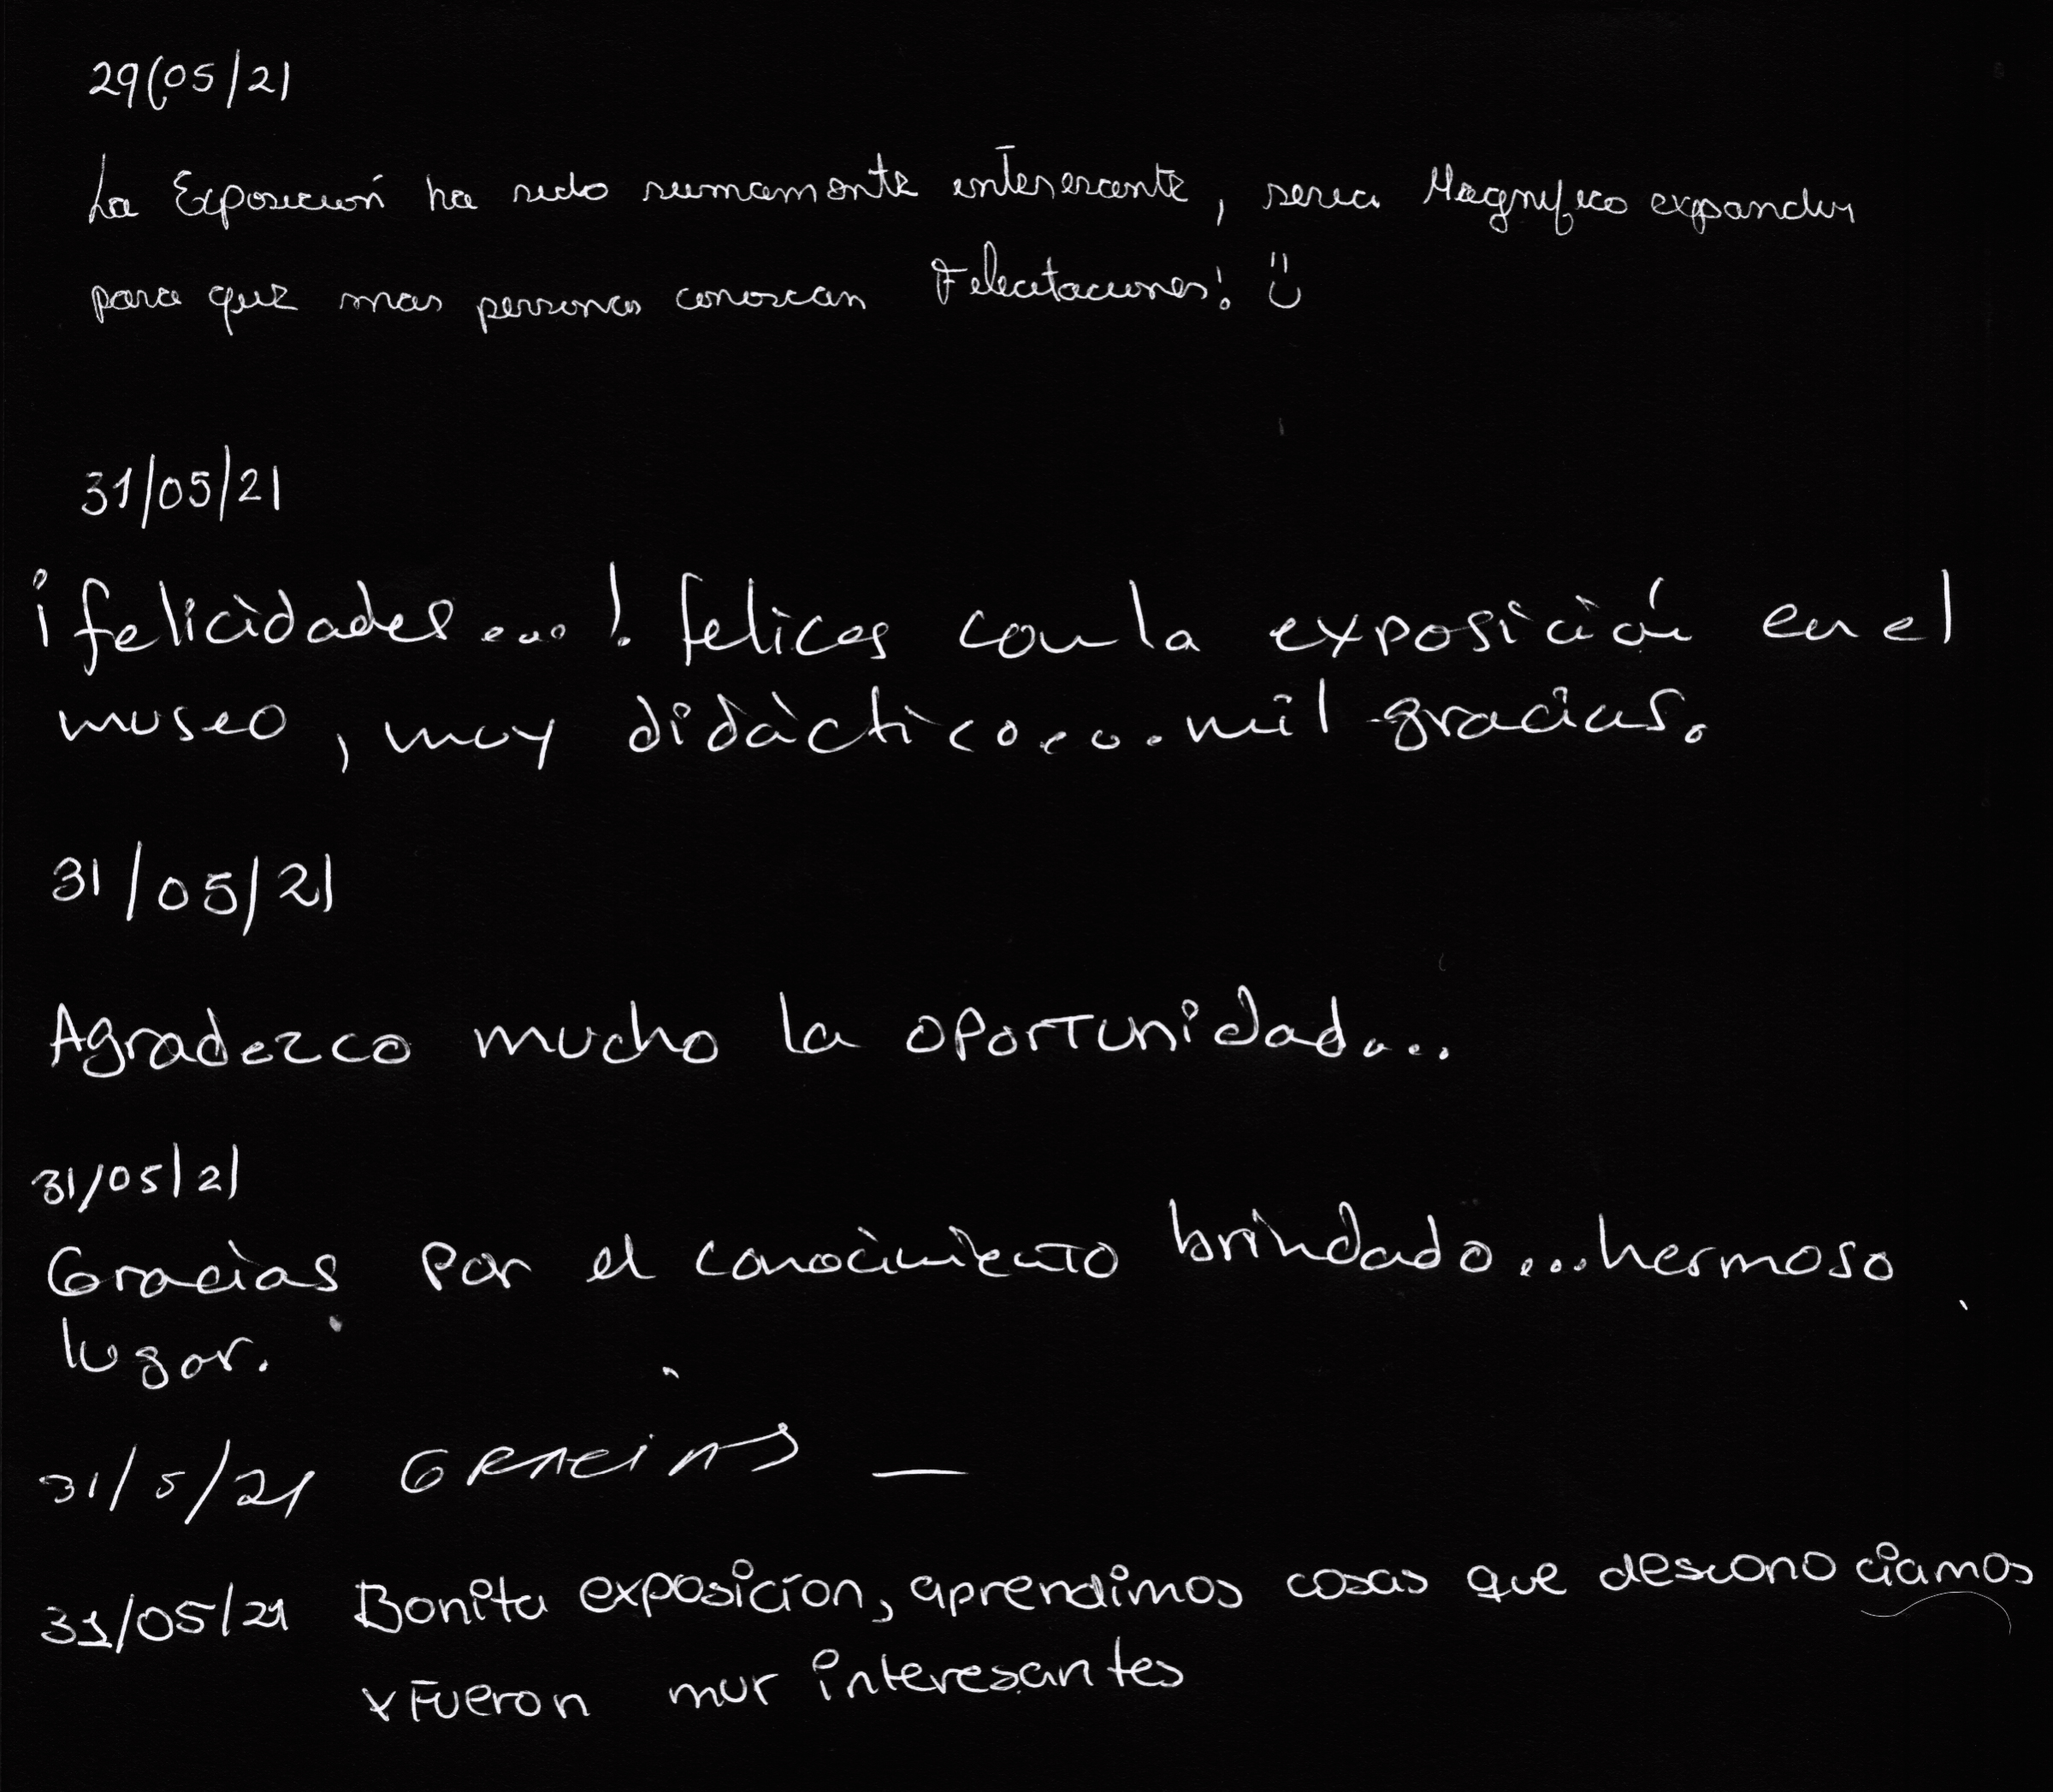 29/05/21
La Exposición ha sido sumamente interesante, seria Magnifico expandir
para que mas personas conoscan Felicitaciones! :)
31/05/21
¡felicidades...! felices con la exposición en el
museo, muy didáctico.... mil gracias.
31/05/21
Agradezco mucho la oportunidad....
31/05/21
Gracias por el conocimiento brindado...hermoso
lugar.
31/5/21 GRACIAS —
31/05/21 Bonita exposicion, aprendimos cosas que desconociamos
y Fueron muy interesantes